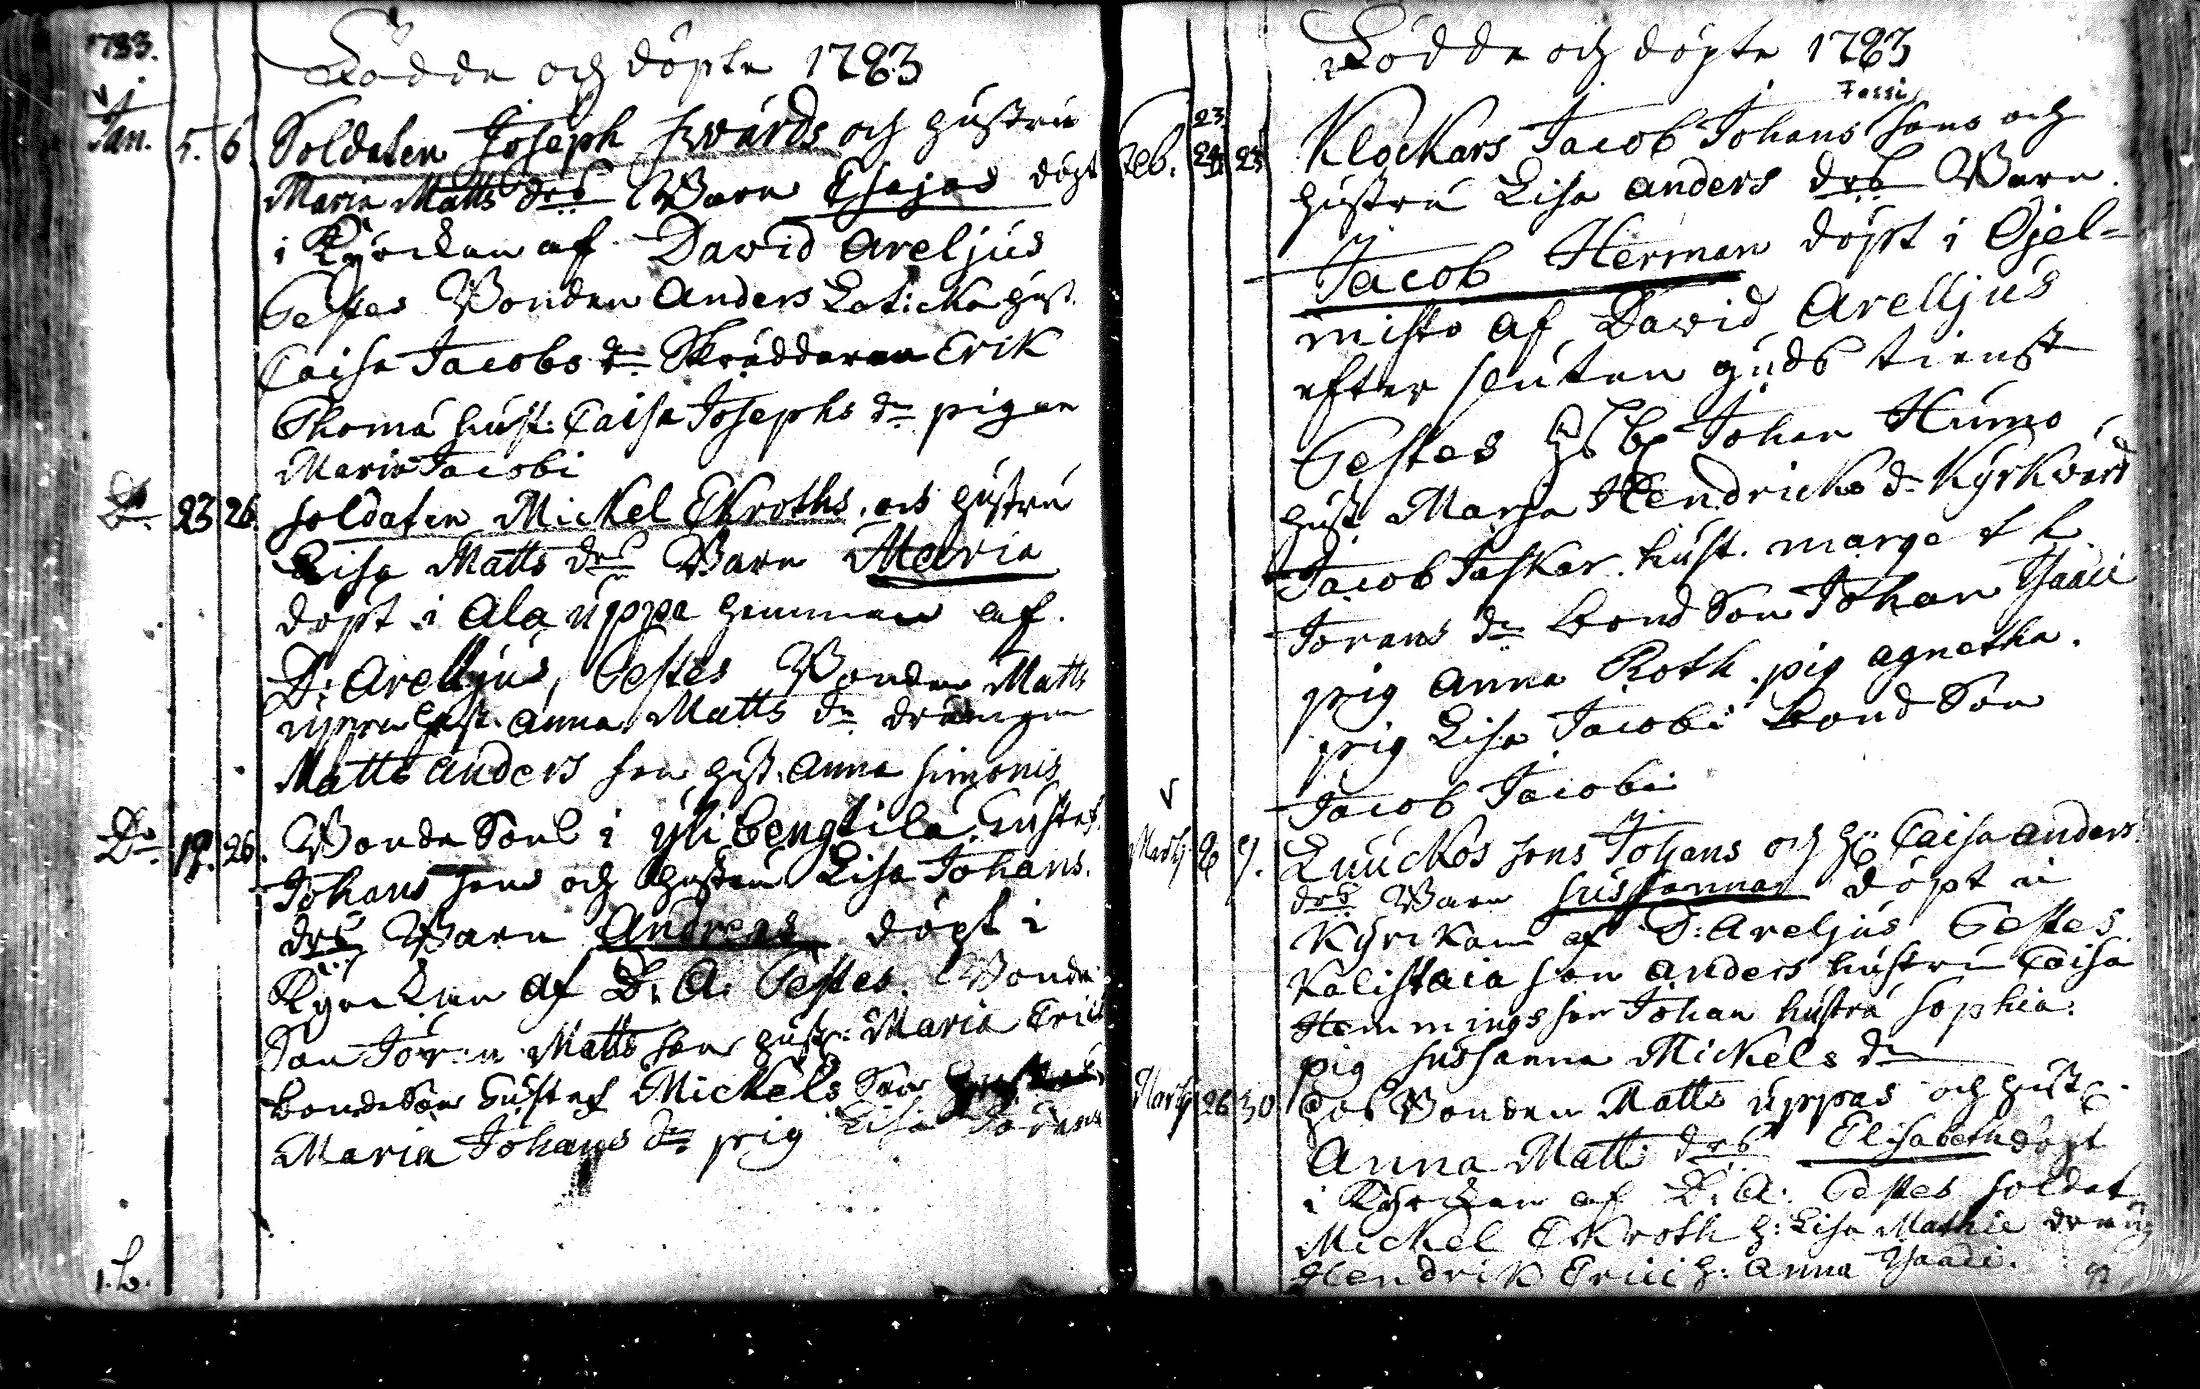 1783.
Födde och döpte 1783
Jan. 5. 6. Soldaten Joseph Swärds och hustru
Maria Matts drs Barn Esajas döpt
i Kyrckan af David Areljus
Testes Bonden Anders hust.
Caisa Jacobs dr Skräddaren Erik
Thoma hust: Caisa Josephs dr pigan
Maria Jacobi
Do 23 26. Soldaten Mickel Ekroths och hustru
Lisa Matts drs Barn Maria
döpt i Ala uppa hemman af
D: Arelljus, Testes Bonden Matts
uppa hust. Anna Matts dr drängen
Matts Anders son hust. Anna Simonis
Do 19. 26. Bonde Sons i yli Bengtila Gustaf
Johans sons och hustru Lisa Johans
drs Barn Andreas döpt i
Kyrckan af D. A. Testes. Bonde
Son Jöran Matts son hust: Maria Erici
bonde Son Gustaf Mickels Son
Maria Johans dr pig Lisa Jörans
1. b.
Födde och döpte 1783
Fassi
23
Feb. 24 25 Klockars Jacob Johans sons och
hustru Lisa Anders drs Barn
Jacob Herman döpt i Gjel-
misto af David Arelljus
efter sluten guds tienst
Testes Johan Humo
hust Marja Hendricks dr Kyrkvärd
Jacob Jaskar. hust. marge t h.
Jörans dr bond Son Johan Isaaci
pig Anna Roth. pig agnetha.
pig Lisa Jacobi bond Son
Jacob Jacobi
Martij 6 9. Luuckos sons Johans och h: Caisa anders
drs Barn Sussanna döpt i
Kyrckan af D: Areljus Testes
Kalistaia son Anders hustru Caisa
Hemmings son Johan hustru Sophia:
pig Sussanna Mickels dr
Martij 26 30 Bonden Matts uppas och hust
Anna Matts drs Elisabeth döpt
i Kyrckan af D: A: Testes Soldat
Mickel Ekroth h: Lisa Mathie dräng
Hendrik Erici h: Anna Isaaci.